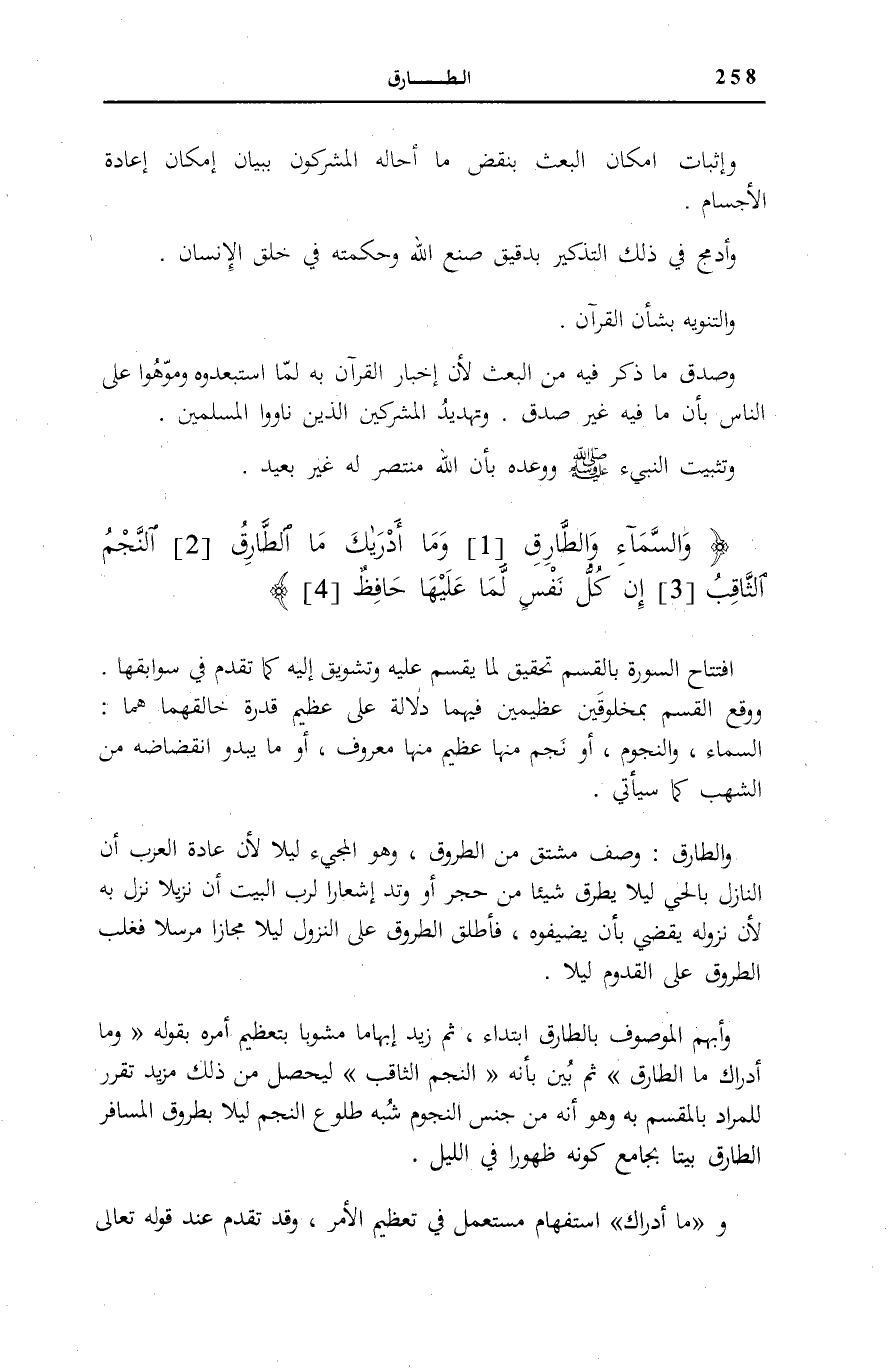 258
الطـــارق
وإثبات امكان البعث بنقض ما أحاله المشركون ببيان إمكان إعادة
الأجسام .
وأدمج في ذلك التذكير بدقيق صنع الله وحكمته في خلق الإنسان .
والتنويه بشأن القرآن .
وصدق ما ذكر فيه من البعث لأن إخبار القرآن به لمّا استبعدوه وموّهُوا على
الناس بأن ما فيه غير صدق . وتهديدُ المشركين الذين ناووا المسلمين .
وتثبيت النبيء ﷺ ووعده بأن الله منتصر له غير بعيد .
﴿ وَالسَّمَآءِ وَالطَّارِقِ [1] وَمَا أَدْرَىٰكَ مَا ٱلطَّارِقُ [2] ٱلنَّجْمُ
ٱلثَّاقِبُ [3] إِن كُلُّ نَفْسٍ لَّمَا عَلَيْهَا حَافِظٌ [4] ﴾
افتتاح السورة بالقسم تحقيق لما يقسم عليه وتشويق إليه كما تقدم في سوابقها .
ووقع القسم بمخلوقَين عظيمين فيهما دلالة على عظيم قدرة خالقهما هما :
السماء ، والنجوم ، أو نَجم منها عظيم منها معروف ، أو ما يبدو انقضاضه من
الشهب كما سيأتي .
والطارق : وصف مشتق من الطروق ، وهو المجيء ليلا لأن عادة العرب أن
النازل بالحي ليلا يطرق شيئا من حجر أو وتد إشعارا لرب البيت أن نزيلا نزل به
لأن نزوله يقضي بأن يضيفوه ، فأطلق الطروق على النزول ليلا مجازا مرسلا فغلب
الطروق على القدوم ليلا .
وأبهم الموصوف بالطارق ابتداء ، ثم زيد إبهاما مشوبا بتعظيم أمره بقوله « وما
أدراك ما الطارق » ثم بُين بأنه « النجم الثاقب » ليحصل من ذلك مزيد تقرر
للمراد بالمقسم به وهو أنه من جنس النجوم شُبه طلوع النجم ليلا بطروق المسافر
الطارق بيتا بجامع كونه ظهورا في الليل .
و «ما أدراك» استفهام مستعمل في تعظيم الأمر ، وقد تقدم عند قوله تعالى